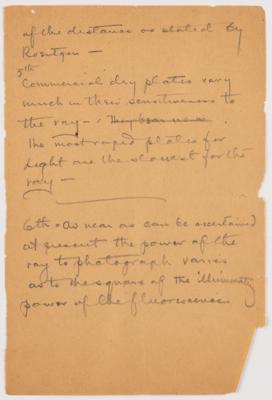 of the distance as stated by
Roentgen —
5th
Commercial dry plates vary
much in their sensitiveness to
the ray —
The most rapid plates for
light are the slowest for the
ray —
6th. As near as can be ascertained
at present the power of the
ray to photograph varies
as to the square of the illuminating
power of the fluorescence